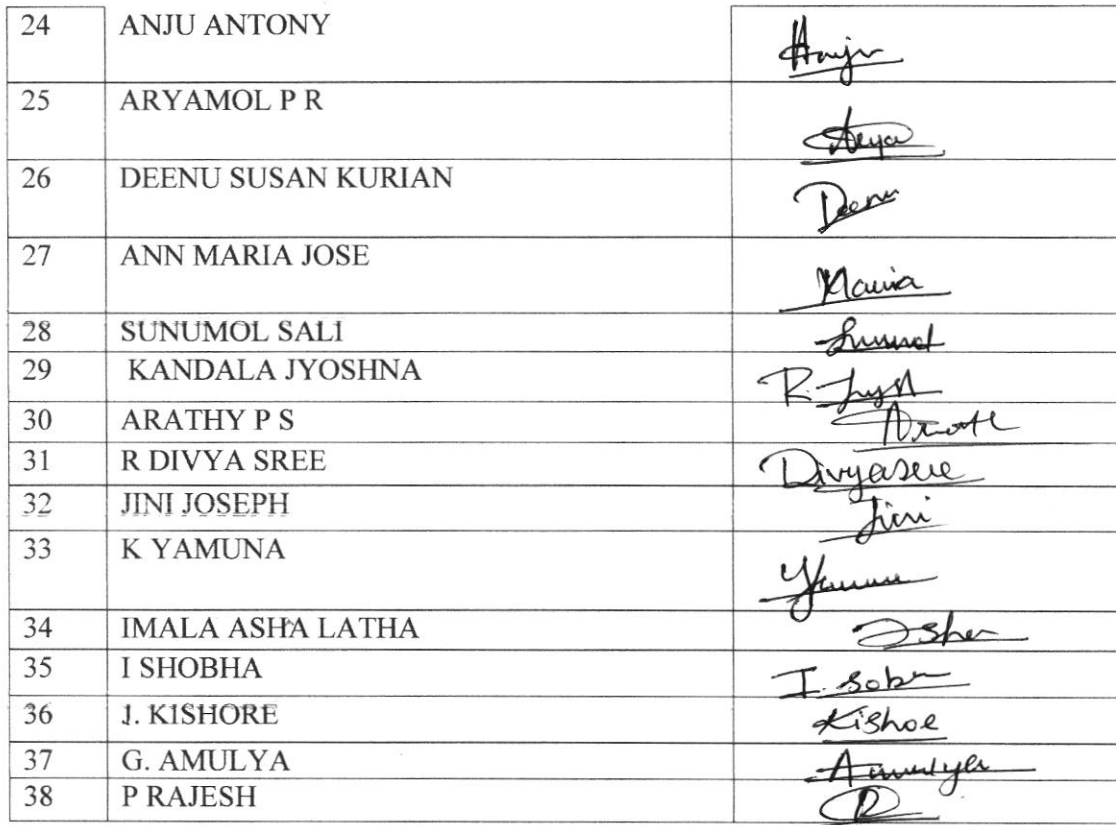 24 ANJU ANTONY Anju
25 ARYAMOL P R Arya
26 DEENU SUSAN KURIAN Deenu
27 ANN MARIA JOSE Maria
28 SUNUMOL SALI
29 KANDALA JYOSHNA
30 ARATHY P S
31 R DIVYA SREE Divyasree
32 JINI JOSEPH Jini
33 K YAMUNA
34 IMALA ASHA LATHA
35 I SHOBHA
36 J. KISHORE Kishoe
37 G. AMULYA Amulya
38 P RAJESH